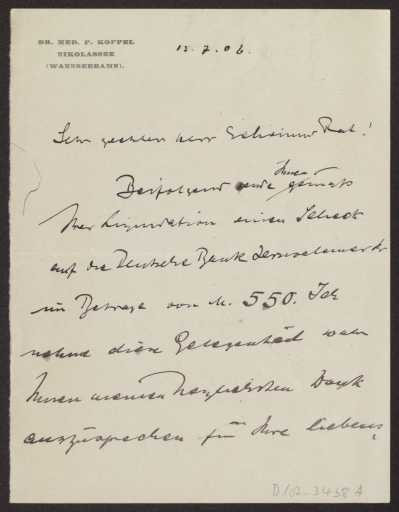 DR. MED. P. KOPPEL
NIKOLASSEE
(WANNSEEBAHN).
12.7.06.
Sehr geehrter Herr Geheimer Rat!
Ihnen
Beifolgend sende gemäß
Ihrer Liquidation einen Scheck
auf die Deutsche Bank
im Betrage von M. 550. Ich
nehme diese Gelegenheit wahr
Ihnen meinen herzlichsten Dank
auszusprechen für Ihre liebens